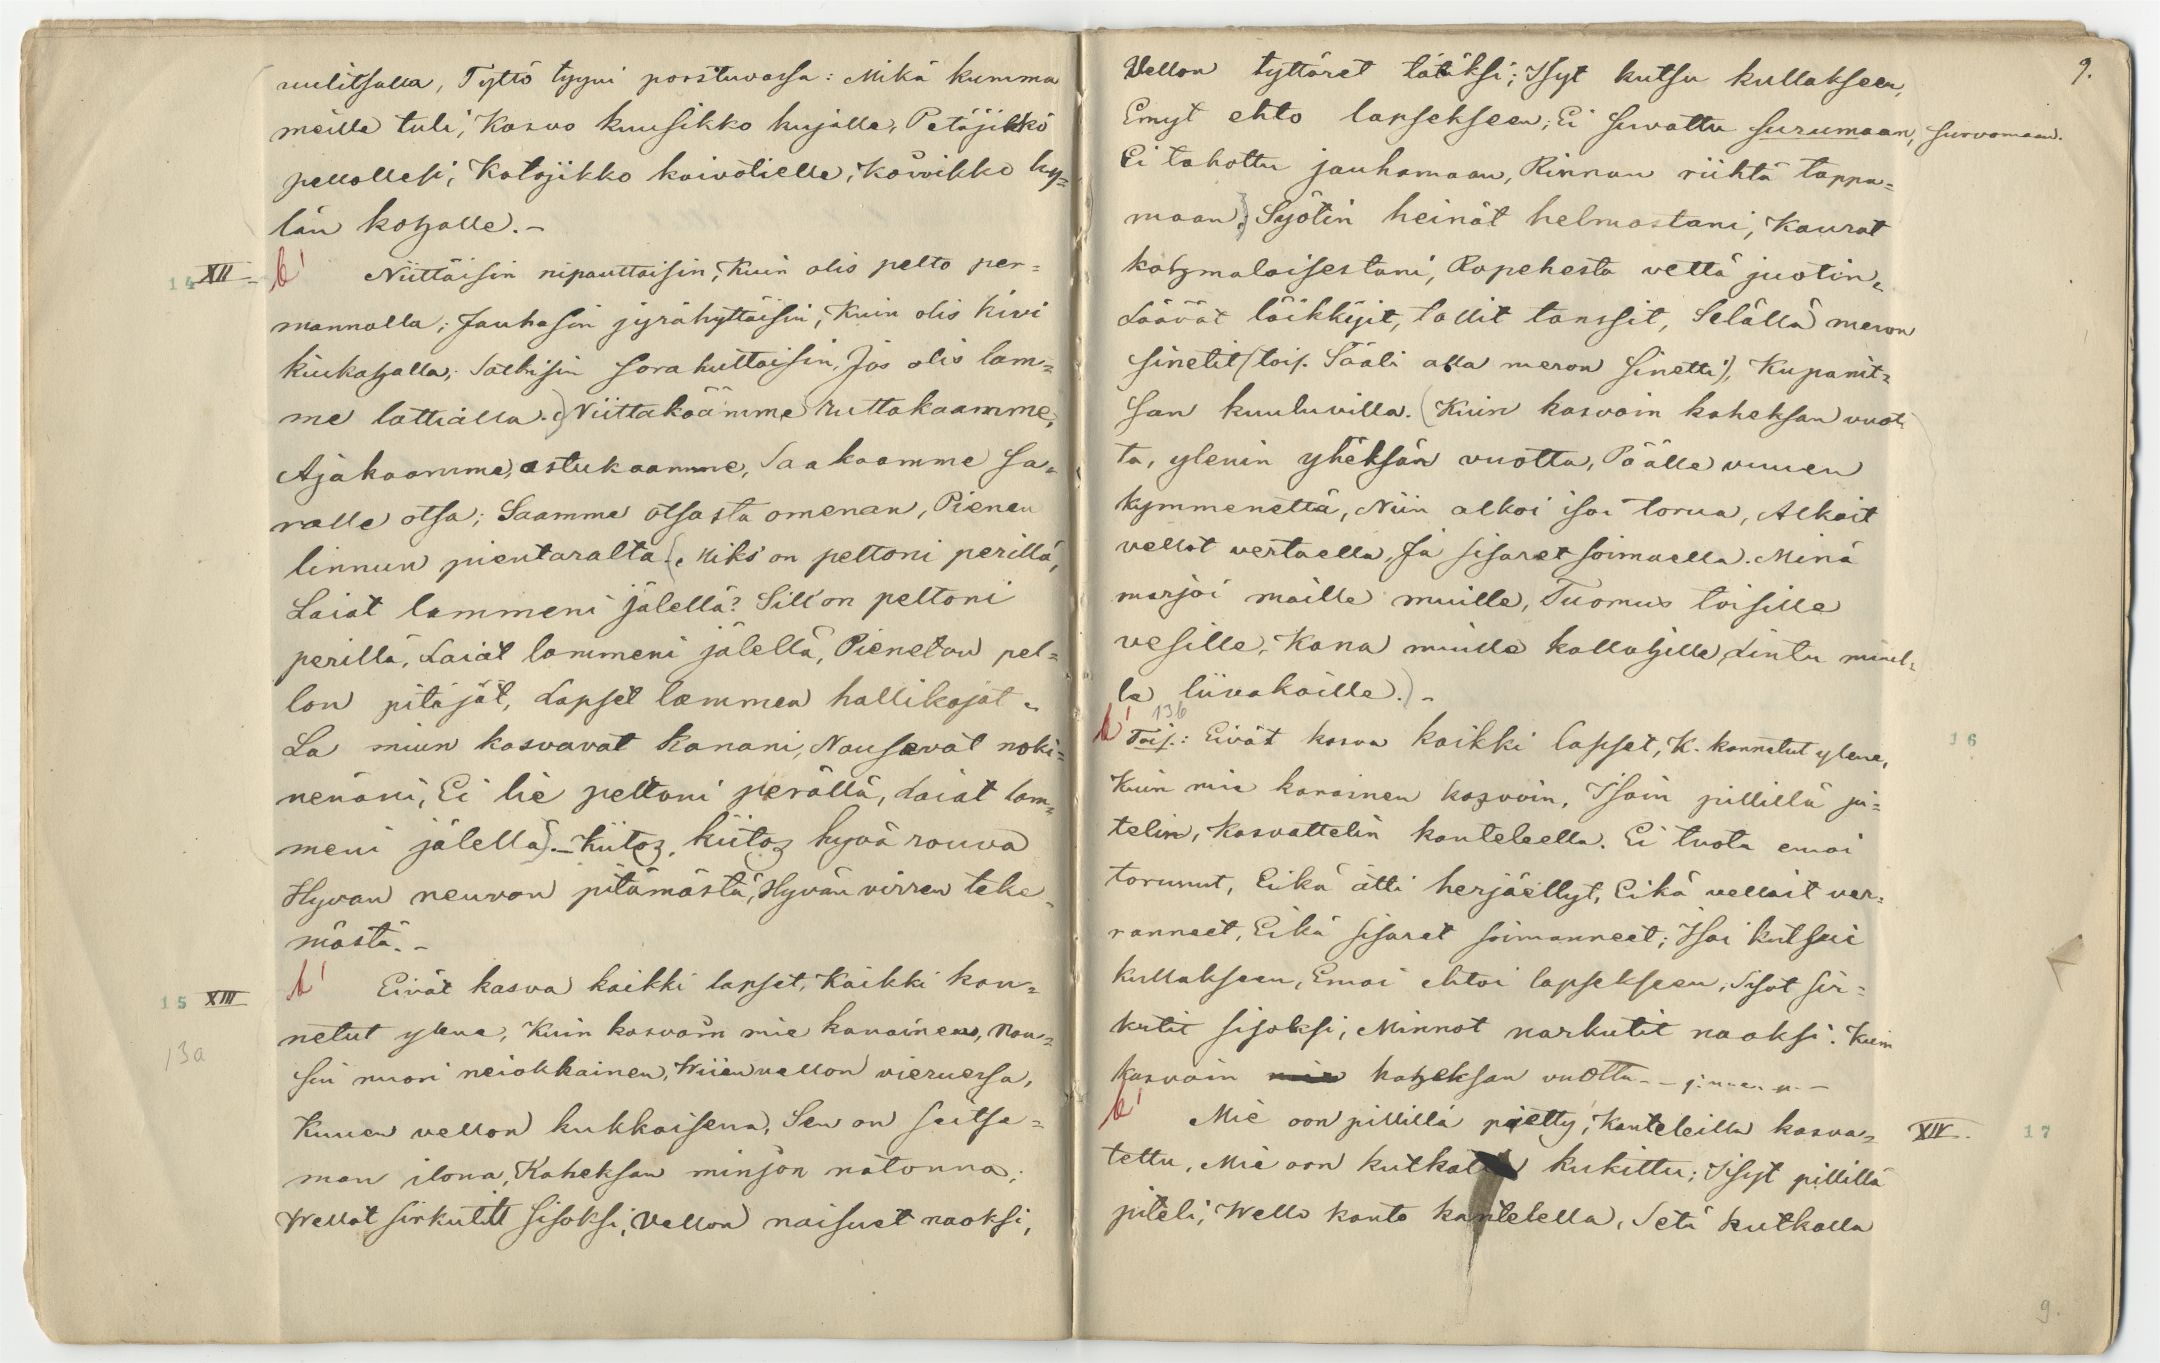 uulitsalla, Tyttö tyyni porstuvassa: Mikä kumma
meille tuli, Kasvo kuusikko kujalle, Petäjikkö
pellollesi; Katajikko kaivotielle, Koivikko ky=
län kohalle.-
14 XII b' Niittäisin nipauttaisin, Kuin olis pelto per=
mannolla; Jauhasin jyrähyttäisin, Kuin olis kivi
kiukahalla; Salbisin sorahuttaisin, Jos olis lam=
me lattialla. Niittakäämme ruttakaamme,
Ajakaamme, astukaamme, Saakaamme sa=
ralle otsa; Saamme otsasta omenan, Pienen
linnun pientaralta. Miks' on peltoni perillä,
Laiat lammeni jälellä? Sill'on peltoni
perillä, Laiat lammeni jälellä, Pienet on pel=
lon pitäjät, Lapset lammen hallikojat.
La miun kasvavat kanani, Nousevat noki=
nenäni, Ei lie peltoni perällä, Laiat lam=
meni jälellä). - Kiitos, kiitos hyvä rouva
Hyvan neuvon pitämästä, Hyvän virren teke=
mästä. -
15 XIII b' Eivät kasva kaikki lapset, Kaikki kan=
13a netut ylene, Kuin kasvoin mie kanainen, Nou=
sin nuori neiokkainen, Wiien vellon vieruessa,
Kuuen vellon kukkaisena, Sen on seitse=
män ilona, Kaheksan minjän natonna;
Wellot sirkutit sisoksi, Vellon naisuet naoksi,
9.
Vellon tyttäret tätiksi; Isyt kutsu kullakseen,
Emyt ehto lapsekseen; Ei suvattu surumaan, survomaan.
Ei tahottu jauhamaan, Rinnan riihtä tappa=
maan. Syötin heinät helmastani, Kaurat
kahmaloisestani, Ropehesta vettä juotin,
Läävät läikkyit, tallit tanssit, Selällä meron
sinetit (tois. Sääli alla meron sinetti), Kupanit=
san kuuluvilla. (Kuin kasvoin kaheksan vuot=
ta, ylenin yheksän vuotta, Päälle vuuen
kymmenettä, Niin alkoi isoi torua, Alkoit
vellot vertaella, Ja sisaret soimaella. Minä
marjoi maille muille, Tuomus toisille
vesille, Kana muille kallohille, Lintu muil=
le liivakoille.) -
136
b' Tois.: Eivät kasva kaikki lapset, K. kannetut ylene, 16
Kuin mie kanainen kasvoin, Isoin pillillä pi=
telin, Kasvattelin kanteleella. Ei tuota emoi
torunut, Eikä ätti herjäellyt, Eikä velloit ver=
ranneet, Eikä sisaret soimanneet; Isoi kutsui
kullakseen, Emoi ehtoi lapsekseen, Sisot sir=
kutit sisoksi, Minnot narkutit naoksi. Kuin
kasvoin kaheksan vuotta - -
b' Mie oon pillillä pietty, Kanteleilla kasva= XIV. 17
tettu, Mie oon kukittu; Isyt pillillä
piteli, Wello kanto kantelella, Setä kutkalla
9.